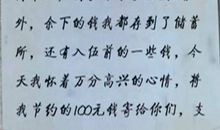 外，余下的钱我都存到了储蓄
所，还有入伍前的一些钱，今
天我怀着万分高兴的心情，将
我节约的100元钱寄给你们，支